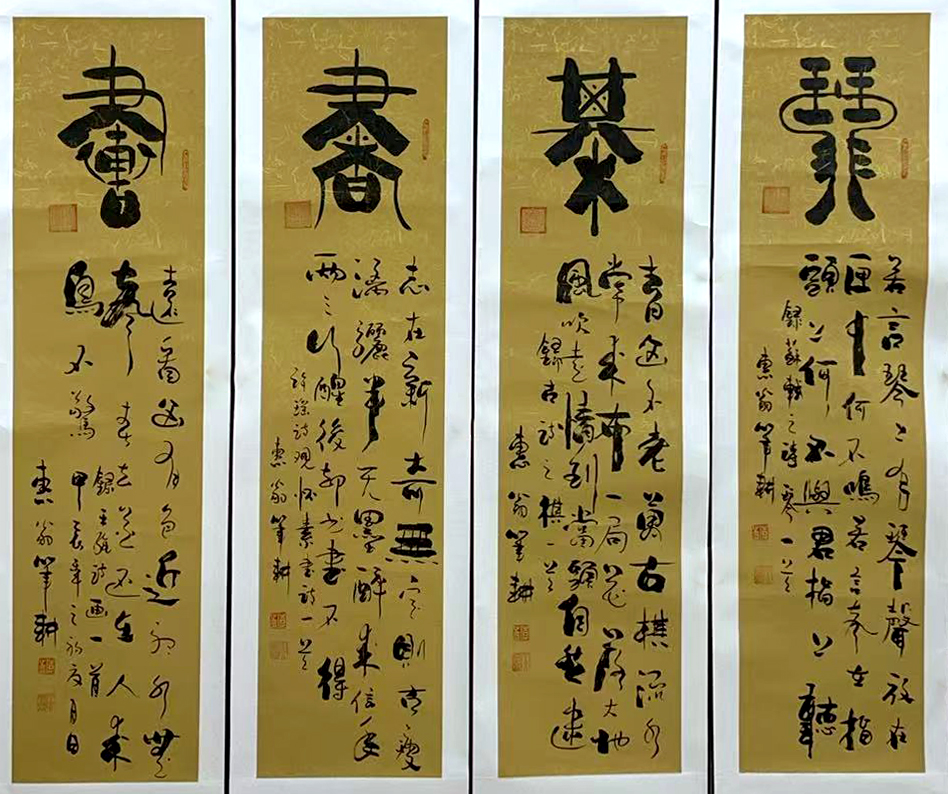 琴
若言琴上有琴聲放在
匣中何不鳴若言聲在指
頭上何不與君指上聽
錄蘇軾之詩琴一首
惠翁筆耕
棋
青山不老萬古棋流水
常来布一局花落大地
風吹走情到當頭自然
錄古詩之棋一首
惠翁筆耕
書
志在新奇無定則古瘦
漓驪半无墨醉来信手
兩三行醒後却書書不得
許瑤詩觀怀素書詩一首
惠翁筆耕
畫
遠看山有色近聽水無
聲春去花還在人来
鳥不驚
錄王維詩畫一首
甲辰年之秋月日
惠翁筆耕